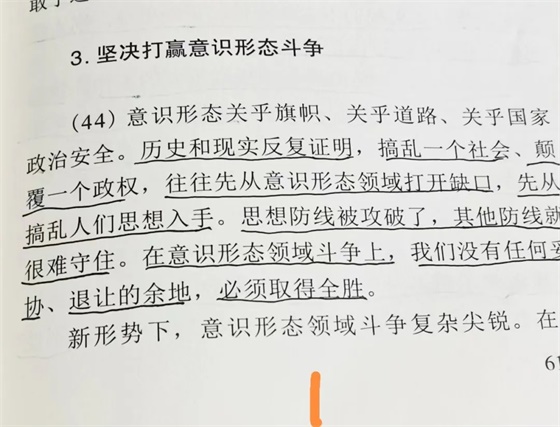 3. 坚决打赢意识形态斗争
(44) 意识形态关乎旗帜、关乎道路、关乎国家
政治安全。历史和现实反复证明，搞乱一个社会、颠
覆一个政权，往往先从意识形态领域打开缺口，先从
搞乱人们思想入手。思想防线被攻破了，其他防线就
很难守住。在意识形态领域斗争上，我们没有任何妥
协、退让的余地，必须取得全胜。
新形势下，意识形态领域斗争复杂尖锐。在